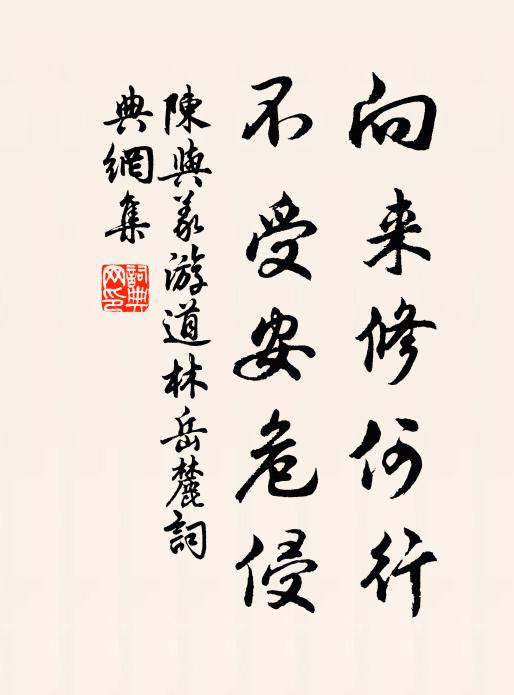 向来修何行
不受安危侵
陳與義游道林岳麓詞
典網集
詞典
网印